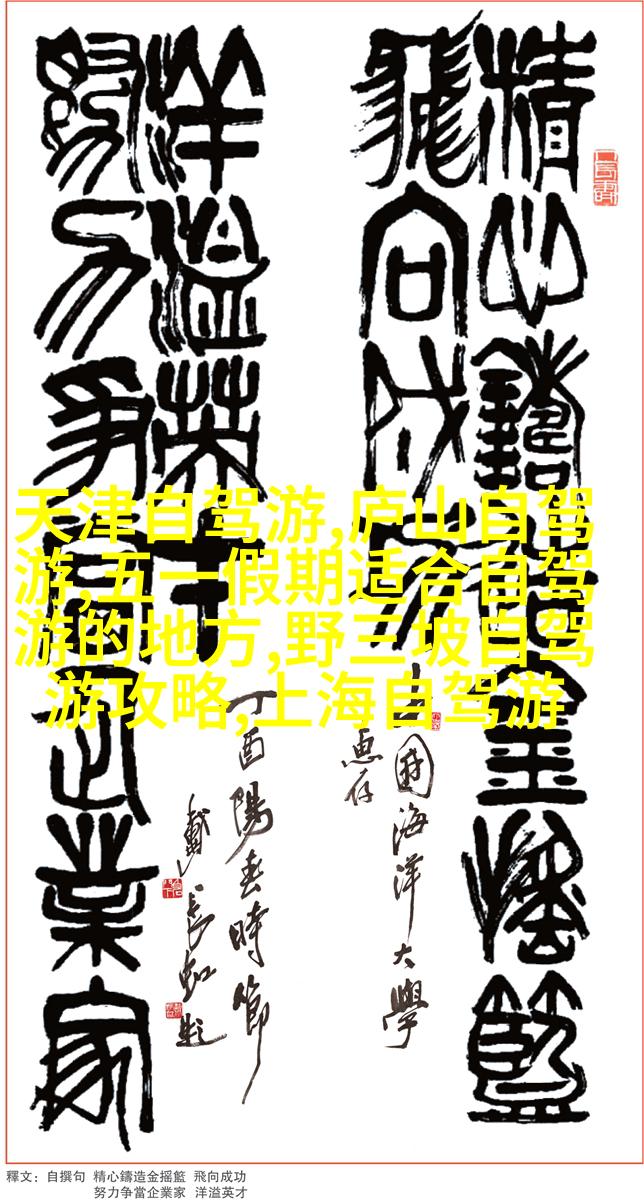 精心鑄造金摇籃
飛向成功
中國海洋大學
惠存
洋溢英才
努力争當企業家
丁酉陽春時節
戴長虹題
天津自驾游,庐山自驾
游,五一假期适合自驾
游的地方,野三坡自驾
游攻略,上海自驾游
釋文：自撰句 精心鑄造金摇籃 飛向成功
努力争當企業家 洋溢英才